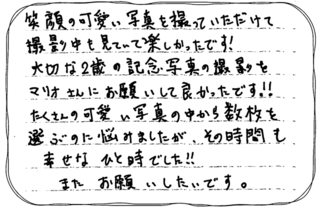 笑顔の可愛い写真を撮っていただけて
撮影中も見ていて楽しかったです!
大切な2歳の記念写真の撮影を
マリオさんにお願いして良かったです!!
たくさんの可愛い写真の中から数枚を
選ぶのに悩みましたが、その時間も
幸せなひと時でした!!
またお願いしたいです。